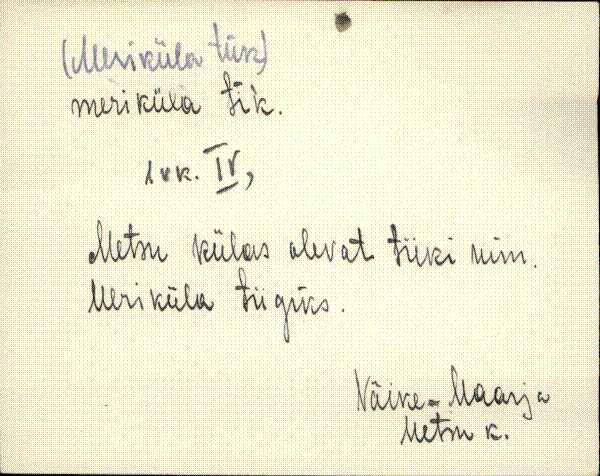 (Meriküla tiik)
meriküla tik.
1 vk. IV,
Metsu külas olevat tiiki nim.
Meriküla tiigiks.
Väike-Maarja
Metsu k.